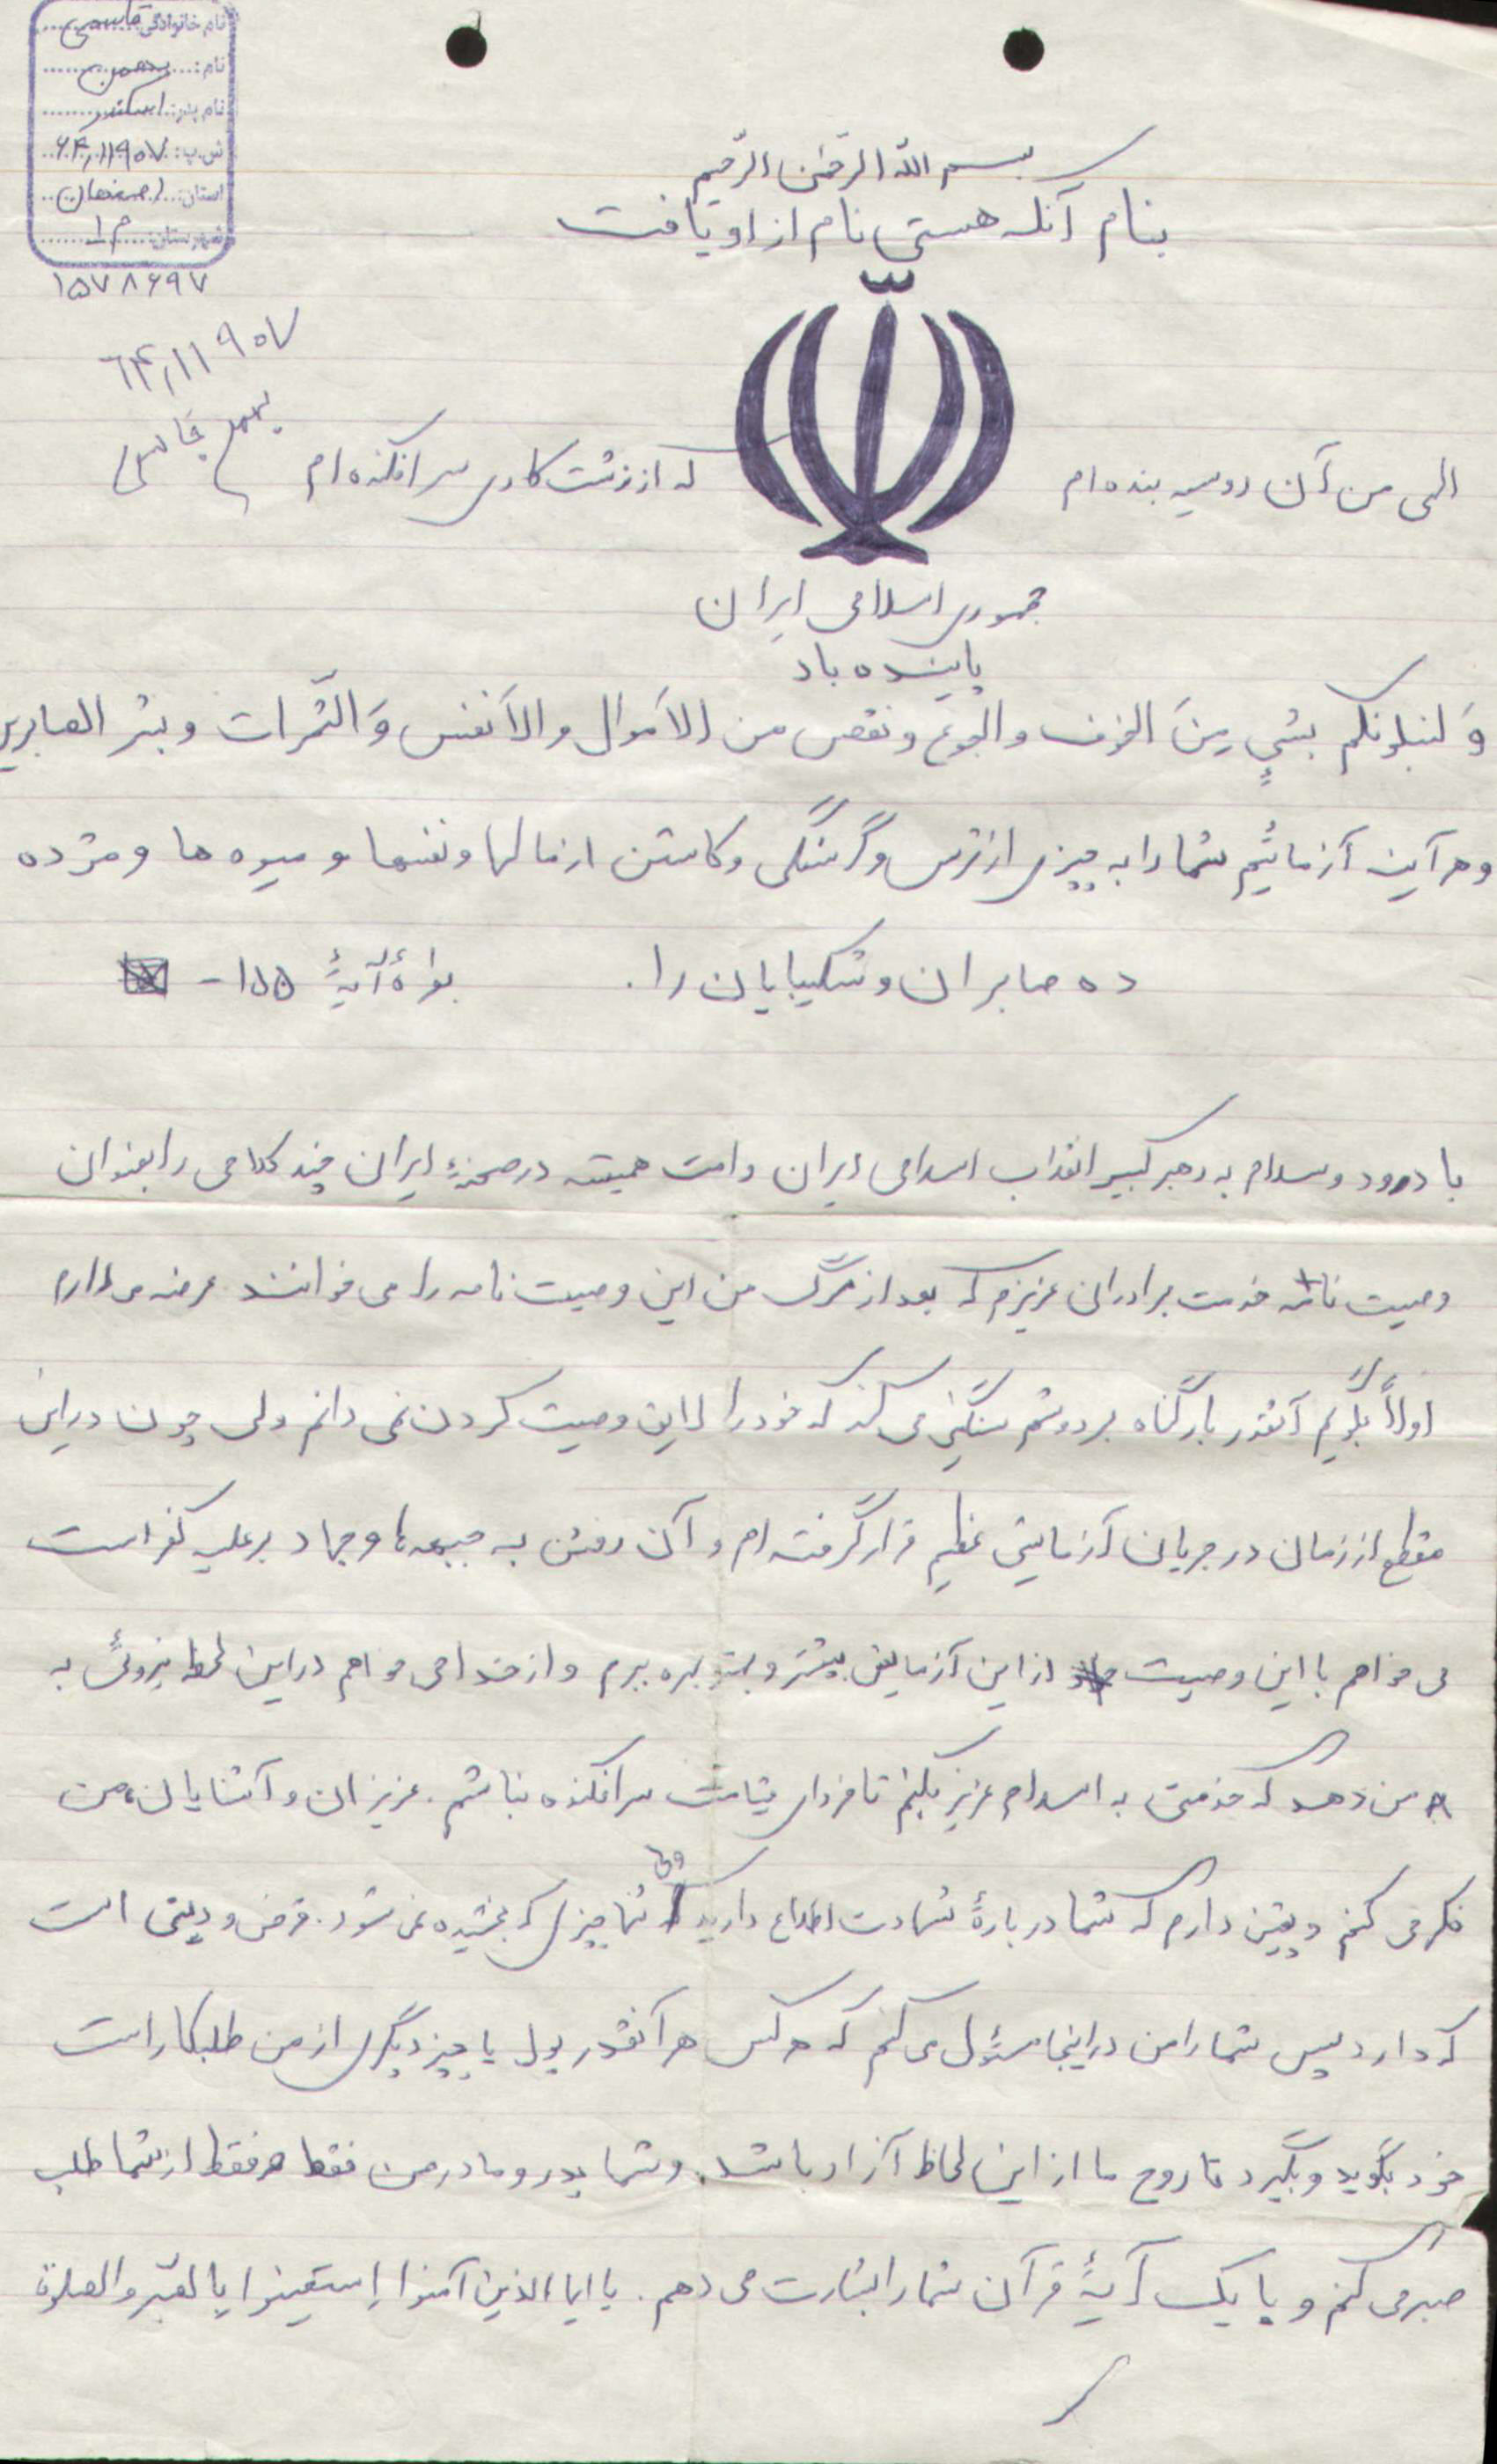 نام خانوادگی: قاسمی
نام: بهمن
نام پدر: اسکندر
ش.پ: ۶۴,۱۱۹۰۷
استان: اصفهان
شهرستان: م ۱
۱۵۷۸۶۹۷
۶۴,۱۱۹۰۷
بهمن قاسمی
بسم الله الرحمن الرحیم
بنام آنکه هستی نام از او یافت
الهی من آن روسیه بنده ام که از زشت کاری سرافکنده ام
جمهوری اسلامی ایران
پاینده باد
وَلنبلونکم بشیٍ مِنَ الخوف والجوع ونقص من الاَموال والاَنفس وَالثّمرات وبشر الصابرین
وهر آینه آزمائیم شما را به چیزی از ترس وگرسنگی وکاستن از مالها ونفسها و میوه ها ومژده
ده صابران وشکیبایان را. بقرهٔ آیهٔ ۱۵۵ -
با درود وسلام به رهبر کبیر انقلاب اسلامی ایران وامت همیشه در صحنهٔ ایران چند کلامی را بعنوان
وصیت نامه خدمت برادران عزیزم که بعد از مرگ من این وصیت نامه را می خوانند عرضه می دارم
اولاً بگویم آنقدر بار گناه بر دوشم سنگینی می کند که خود را لایق وصیت کردن نمی دانم ولی چون در این
مقطع از زمان در جریان آزمایشی عظیم قرار گرفته ام و آن رفتن به جبهه ها وجهاد بر علیه کفر است
می خواهم با این وصیت از این آزمایش بیشتر و بهتر بهره ببرم و از خدا می خواهم در این لحظه نیروئی به
من دهد که خدمتی به اسلام عزیز بکنم تا فردای قیامت سرافکنده نباشم. عزیزان و آشنایان من
فکر می کنم و یقین دارم که شما دربارهٔ شهادت اطلاع دارید که تنها چیزی که بخشیده نمی شود. قرض و دینی است
که دارد پس شما را من در اینجا مسئول می کنم که هر کس هر آنقدر پول یا چیز دیگری از من طلبکار است
خود بگوید و بگیرد تا روح ما از این لحاظ آزاد باشد. وشما پدر و مادر من فقط و فقط از شما طلب
صبر می کنم و با یک آیهٔ قرآن شما را بشارت می دهم. یا ایها الذین آمنوا اِستعینوا بالصّبر والصلوة